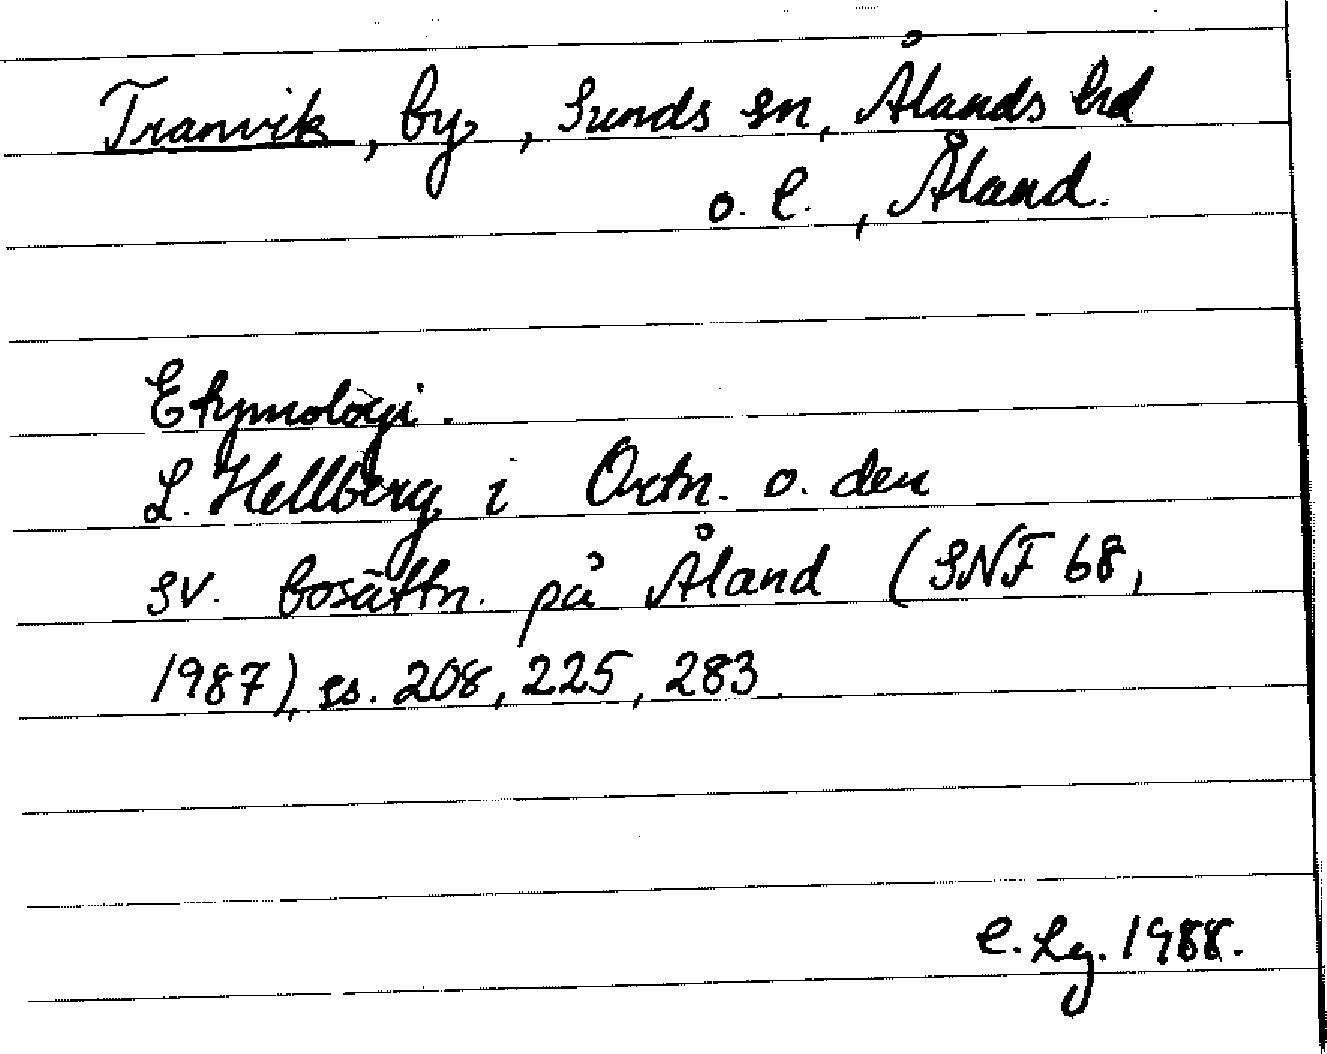 Tranvik, by, Sunds sn, Ålands hd
o. l., Åland.
Etymologi.
L. Hellberg i Ortn. o. den
sv. bosättn. på Åland (SNF 68,
1987), ss. 208, 225, 283
C. Lg. 1988.